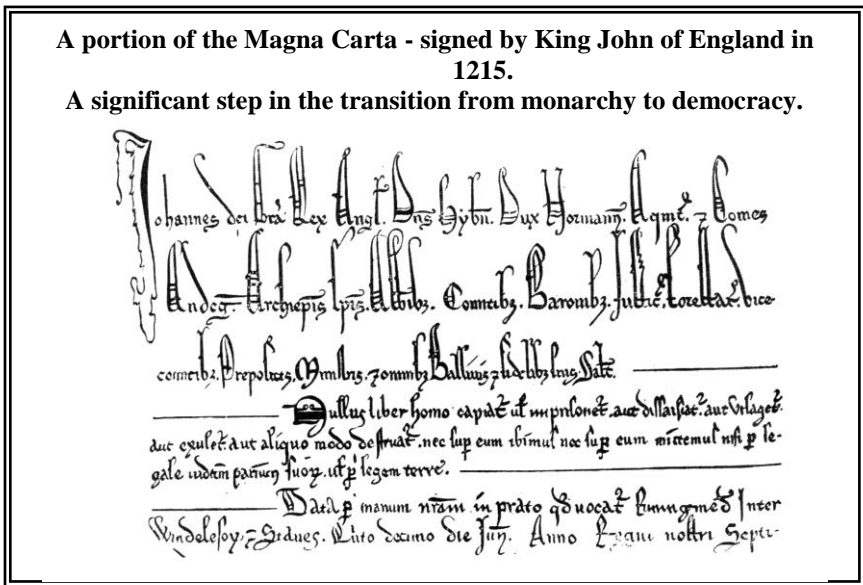 A portion of the Magna Carta - signed by King John of England in
1215.
A significant step in the transition from monarchy to democracy.
Johannes dei Gr̄a Rex Angl. Dn̄s Hybn̄. Dux Normann̄. Aqmt̄. ⁊ Comes
Andeg̅. Archiep̄is Ep̄is. Abbibȝ. Comitibȝ. Baronibȝ. Justic̄. Forestar̄. vice
comitibȝ. Prepositis. Ministris. ⁊ omnibȝ Ballivis ⁊ fidelibȝ suis. Salt̄.
Nullus liber homo capiat̄ ut̄ imprisonet̄. aut dissaisiat̄. aut utlaget̄.
aut exulet̄. aut aliquo modo destruat̄. nec sup̱ eum ibimus nec sup̱ eum mittemus nisi p̱ le-
gale judiciu̅ pariu̅ suoꝝ. ut̄ p̱ legem terre.
Data p̱ manum nr̄am in prato qd̄ vocat̄ Runingmed̄ Inter
Windelesoꝝ. ⁊ Stanes. Quinto decimo die Jun̄. Anno Regni nostri Septi-